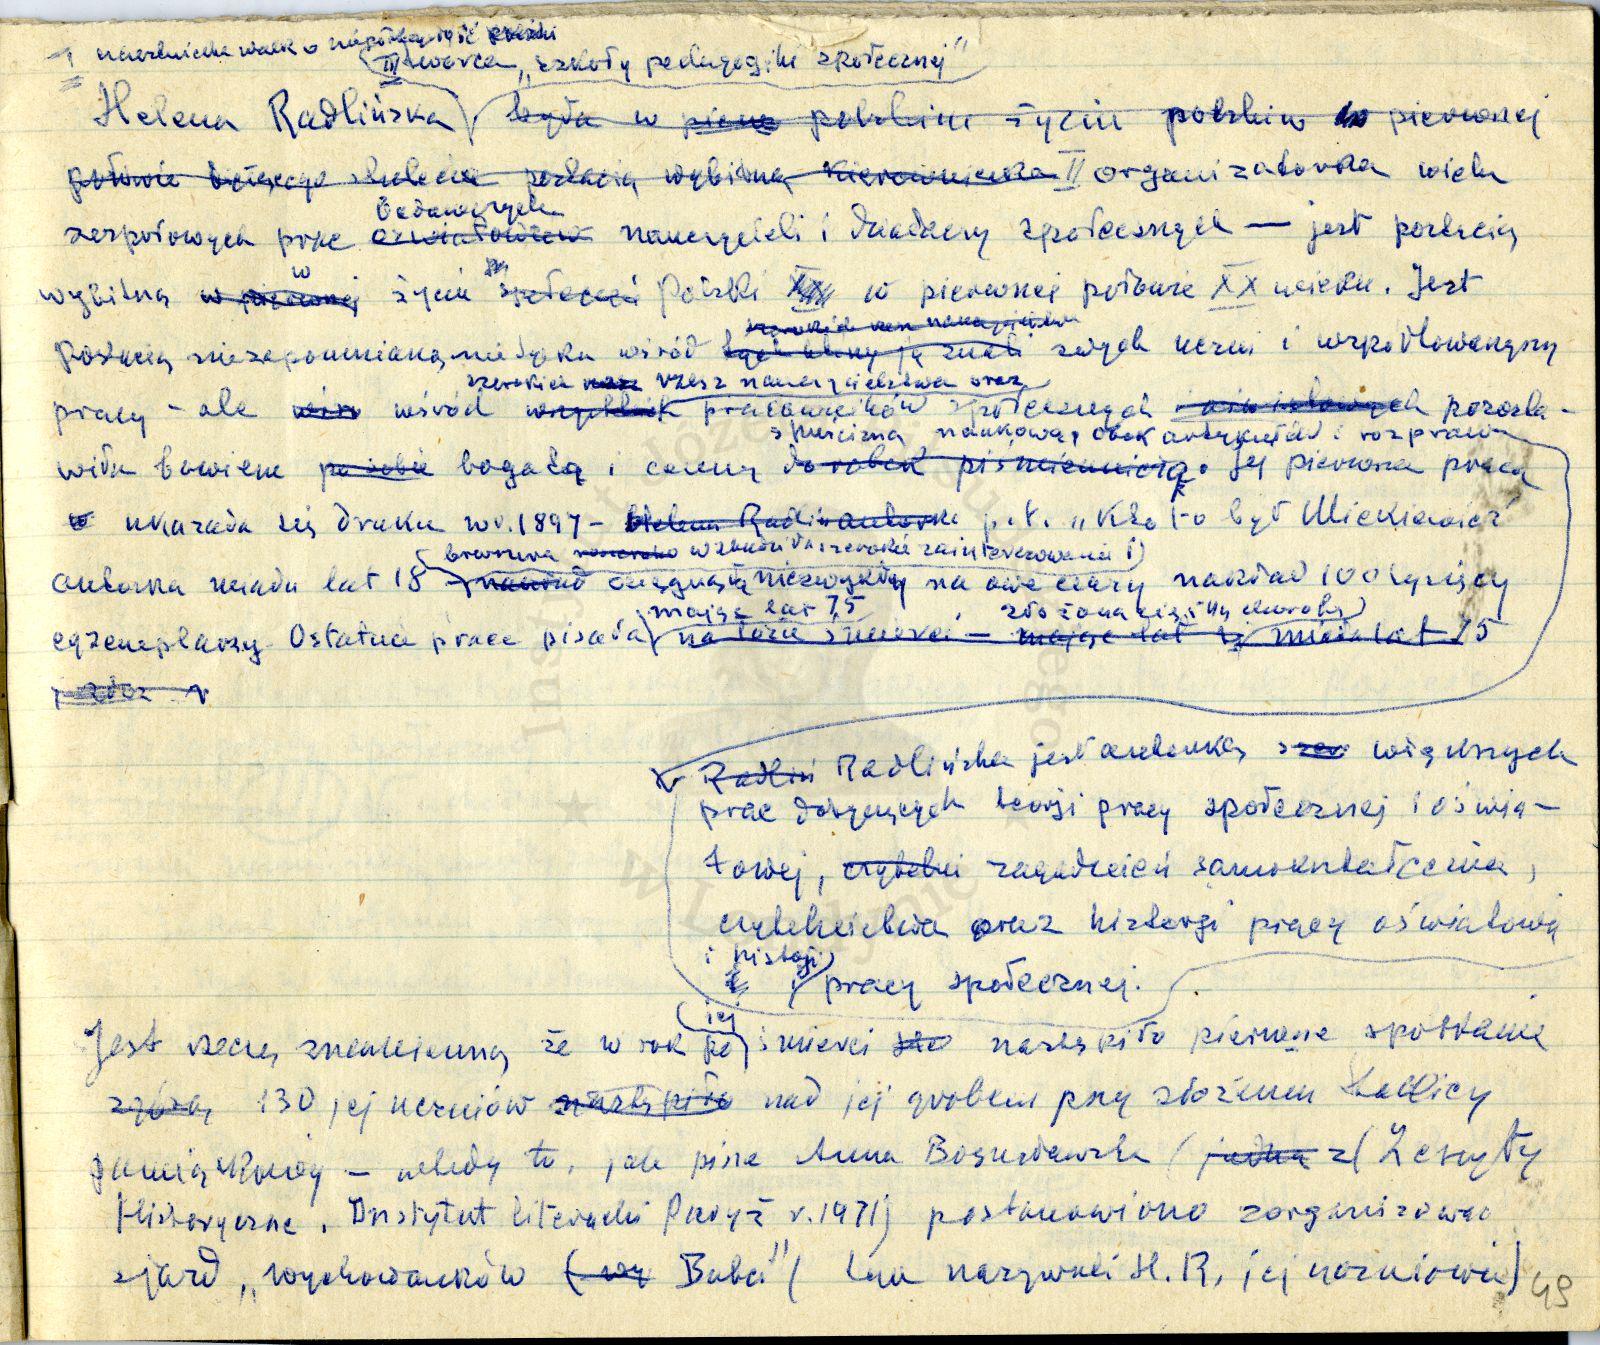 I uczestniczka walk o niepodległość Polski
III twórca „szkoły pedagogiki społecznej"
Helena Radlińska była w polskim życiu polskim w pierwszej
połowie bieżącego stulecia postacią wybitną kierowniczka II organizatorka wielu
badawczych
zespołowych prac oświatowców nauczycieli i działaczy społecznych — jest postacią
wybitną w pierwszej w życiu Polski XX w pierwszej połowie XX wieku. Jest
postacią niezapomnianą nie tylko wśród tych którzy ją znali swych uczni i współtowarzyszy
szerokich rzesz nauczycielstwa oraz
pracy – ale wśród wszystkich pracowników społecznych i oświatowych pozosta-
spuściznę naukową, obok artykułów i rozpraw
wiła bowiem po sobie bogatą i cenną dorobek piśmienniczą. Jej pierwsza praca
w ukazała się druku w r. 1897 – Helena Radlin autorka p.t. „Kto to był Mickiewicz"
broszura wzbudziła szerokie zainteresowanie i
autorka miała lat 18 – nakład osiągnęła niezwykły na owe czasy nakład 100 tysięcy
mając lat 75 złożona ciężką chorobą
egzemplarzy. Ostatnie prace pisała na łożu śmierci – mając lat miała lat 75
Radliń Radlińska jest autorką szer większych
prac dotyczących teorji pracy społecznej i oświa-
towej, czytelni zagadnień samokształcenia,
czytelnictwa oraz historji pracy oświatowej
i historji
pracy społecznej.
jej
Jest rzeczą znamienną że w rok po śmierci nastąpiło pierwsze spotkanie
130 jej uczniów nastąpiło nad jej grobem przy złożeniu tablicy
pamiątkowej – wtedy to, jak pisze Anna Bogusławska (jedna z (Zeszyty
Historyczne. Instytut Literacki Paryż r. 1971) postanowiono zorganizować
zjazd „wychowanków (wy Babci" (tak nazywali H. R. jej uczniowie)
49
Instytut Józefa Piłsudskiego
w Londynie